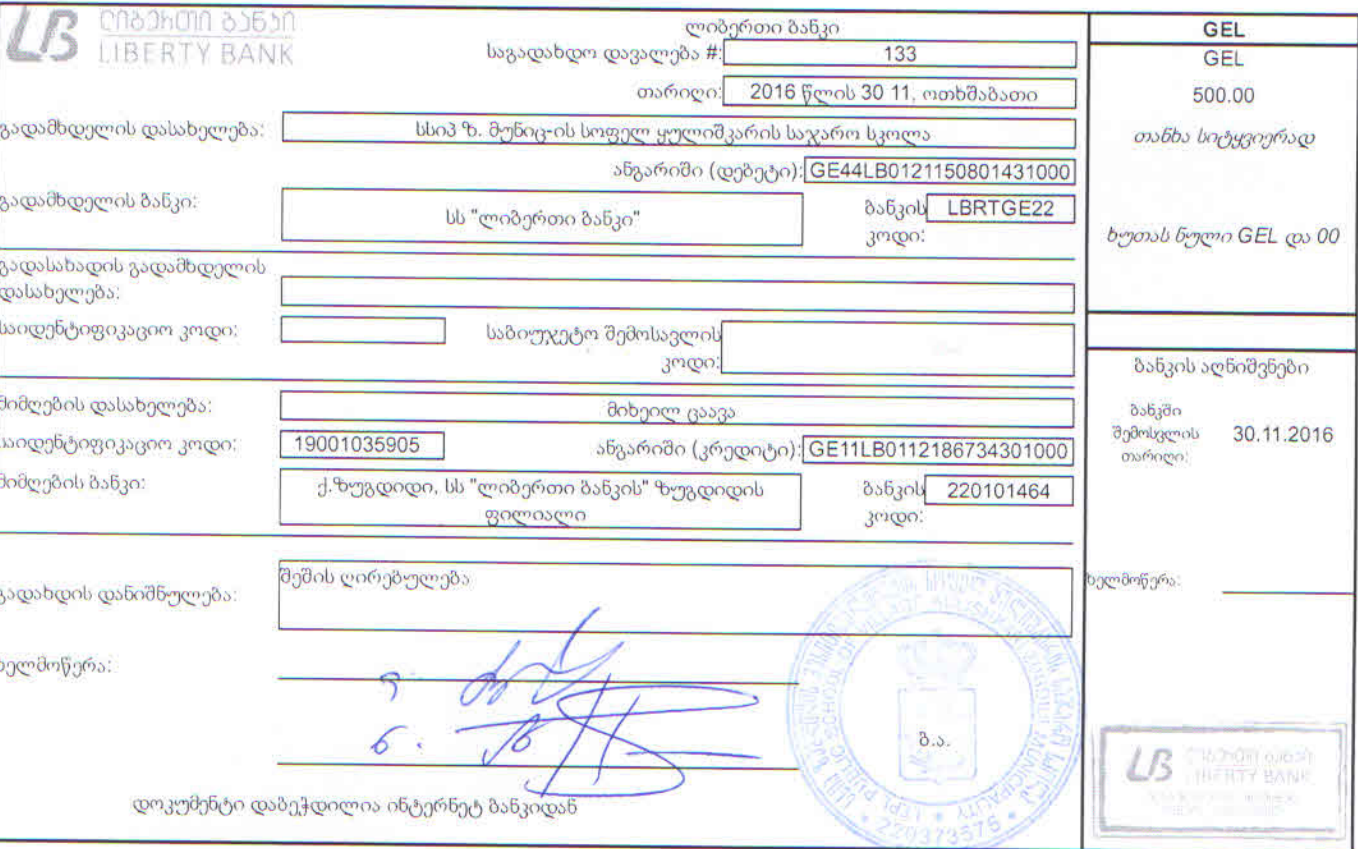 ლიბერთი ბანკი
LIBERTY BANK
ლიბერთი ბანკი
საგადახდო დავალება #: 133
თარიღი: 2016 წლის 30 11, ოთხშაბათი
გადამხდელის დასახელება: სსიპ ზ. მუნიც-ის სოფელ ყულიშკარის საჯარო სკოლა
ანგარიში (დებეტი): GE44LB0121150801431000
გადამხდელის ბანკი: სს "ლიბერთი ბანკი" ბანკის კოდი: LBRTGE22
გადასახადის გადამხდელის
დასახელება:
საიდენტიფიკაციო კოდი: საბიუჯეტო შემოსავლის
კოდი:
მიმღების დასახელება: მიხეილ ცაავა
საიდენტიფიკაციო კოდი: 19001035905 ანგარიში (კრედიტი): GE11LB0112186734301000
მიმღების ბანკი: ქ.ზუგდიდი, სს "ლიბერთი ბანკის" ზუგდიდის
ფილიალი
ბანკის კოდი: 220101464
გადახდის დანიშნულება: შეშის ღირებულება
ხელმოწერა:
ბ.ა.
220373575
დოკუმენტი დაბეჭდილია ინტერნეტ ბანკიდან
GEL
GEL
500.00
თანხა სიტყვიერად
ხუთას ნული GEL და 00
ბანკის აღნიშვნები
ბანკში
შემოსვლის 30.11.2016
თარიღი:
ხელმოწერა:
LB ლიბერთი ბანკი
LIBERTY BANK